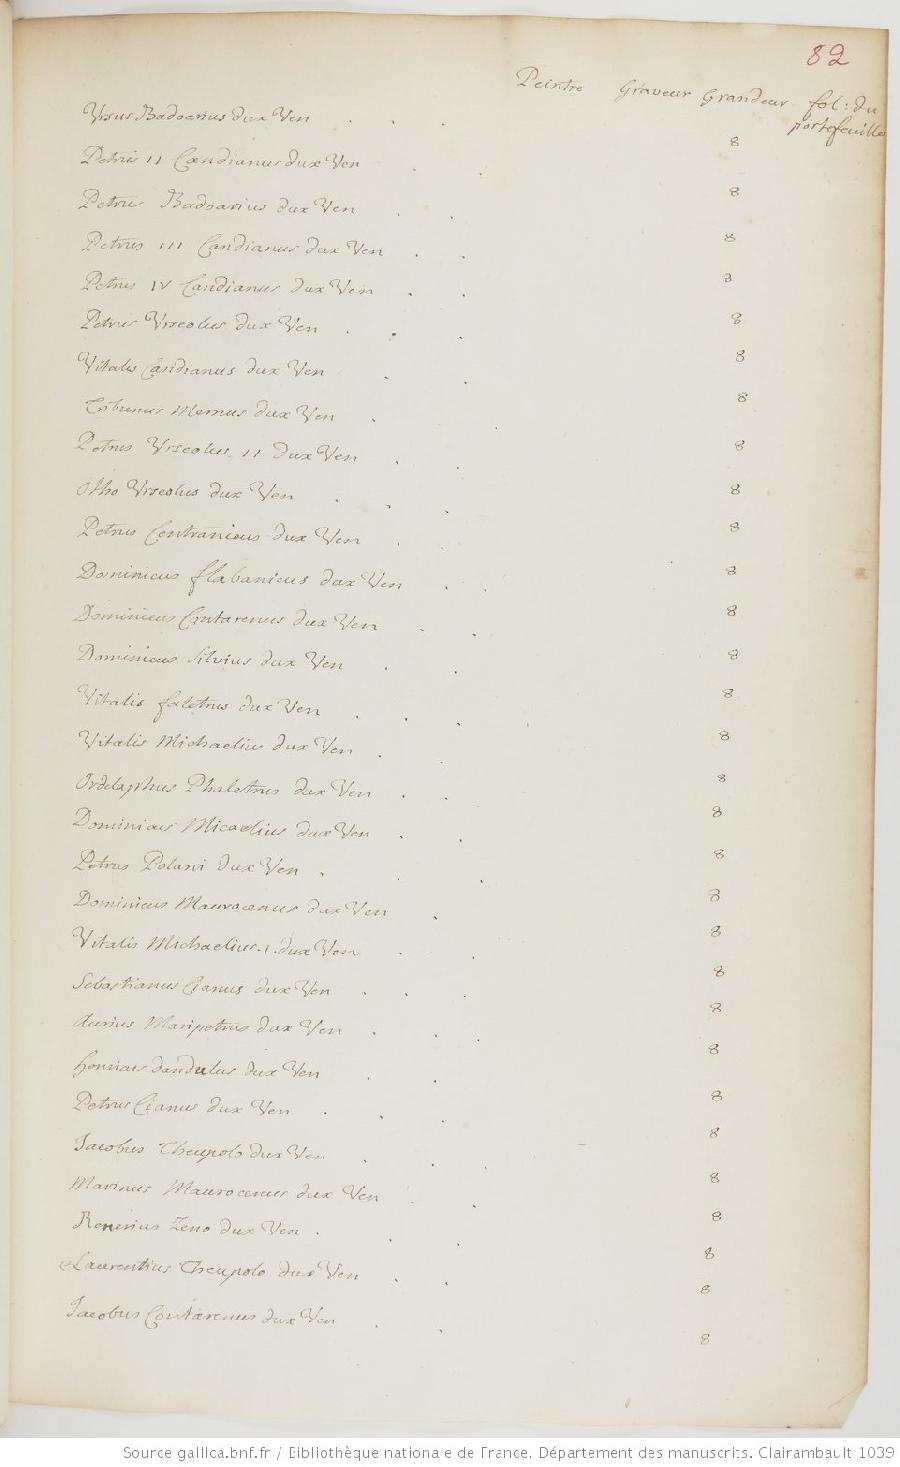 82
Peintre Graveur Grandeur fol: du
portefeuille
Vrsus Badoarius dux Ven 8
Petrus II Candianus dux Ven 8
Petrus Badoarius dux Ven 8
Petrus III Candianus dux Ven 8
Petrus IV Candianus dux Ven 8
Petrus Vrseolus dux Ven 8
Vitalis Candianus dux Ven 8
Tribunus Memus dux Ven 8
Petrus Vrseolus II dux Ven 8
Otho Vrseolus dux Ven 8
Petrus Centranicus dux Ven 8
Dominicus flabanicus dux Ven 8
Dominicus Contarenus dux Ven 8
Dominicus Silvius dux Ven 8
Vitalis faletrus dux Ven 8
Vitalis Michaelius dux Ven 8
Ordelaphus Phaletrus dux Ven 8
Dominicus Micaelius dux Ven 8
Petrus Polani dux Ven 8
Dominicus Maurocenus dux Ven 8
Vitalis Michaelius dux Ven 8
Sebastianus Cianus dux Ven 8
Aurius Maripetrus dux Ven 8
dandulus dux Ven 8
Petrus Cianus dux Ven 8
Jacobus Theupolo dux Ven 8
Marinus Maurocenus dux Ven 8
Renerius Zeno dux Ven 8
Laurentius Theupolo dux Ven 8
Jacobus Contarenus dux Ven 8
Source gallica.bnf.fr / Bibliothèque nationale de France. Département des manuscrits. Clairambault 1039